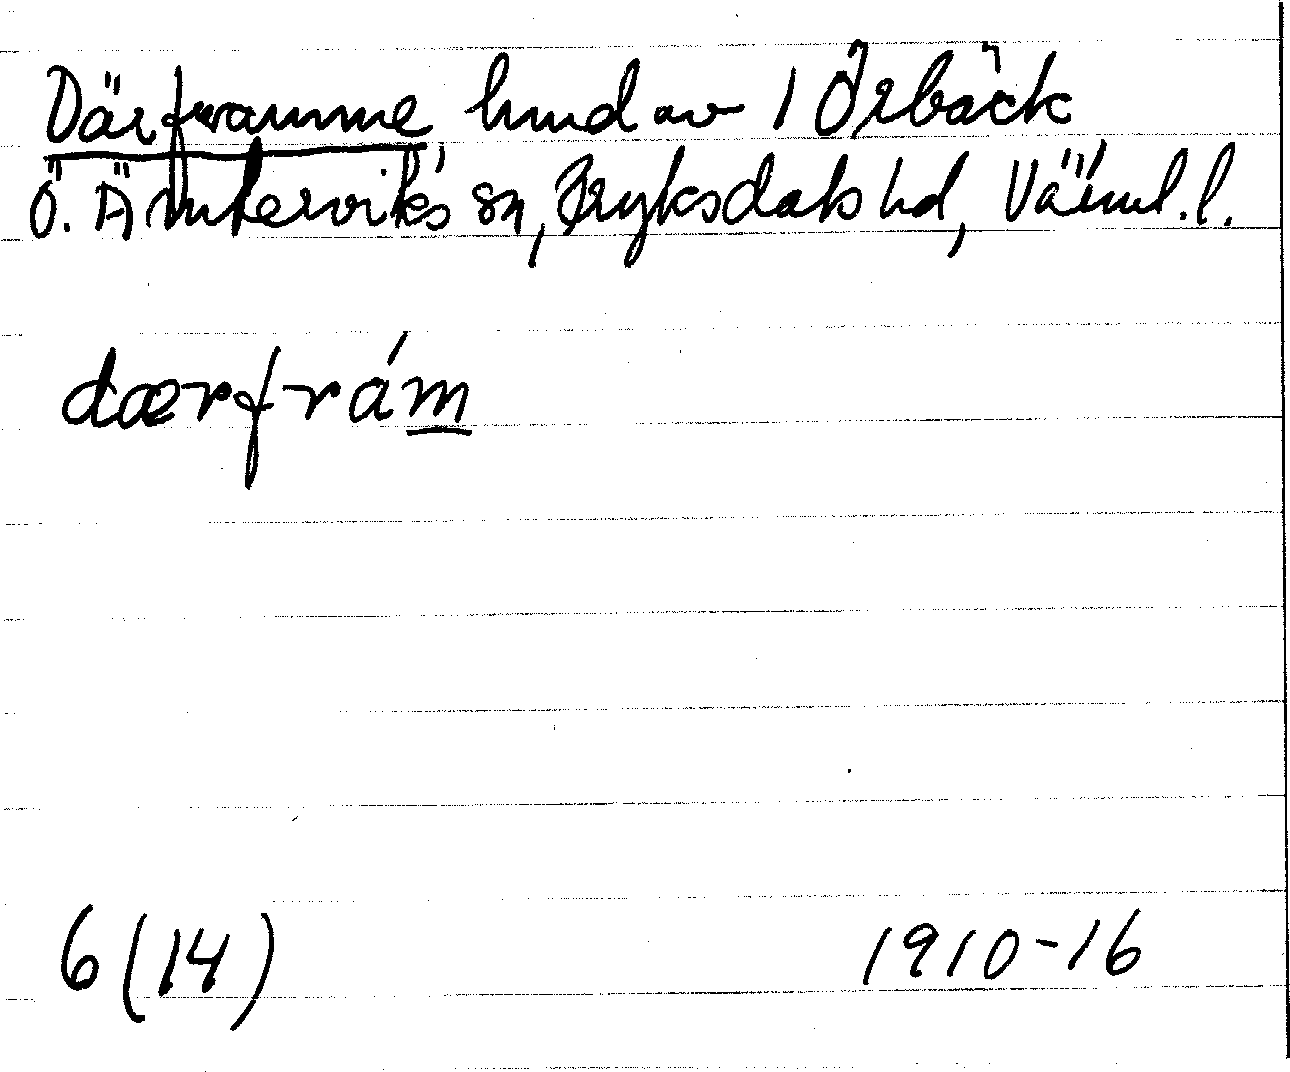 Därframme, hmd av 1 Örbäck
Ö. Ämterviks sn, Fryksdals hd, Värml.l.
dærfrám
6 (14)
1910-16